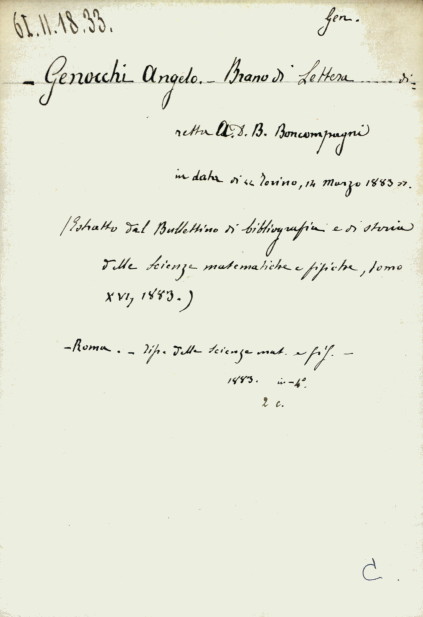 61.11.18.33.
Gen.
- Genocchi Angelo. - Brano di Lettera ...... di-
retta A. D. B. Boncompagni
in data di « Torino, 14 Marzo 1883 ».
(Estratto dal Bullettino di bibliografia e di storia
delle scienze matematiche e fisiche, tomo
XVI, 1883.)
- Roma. - Tip. delle scienze mat. e fis. -
1883. in-4°.
2 c.
C.